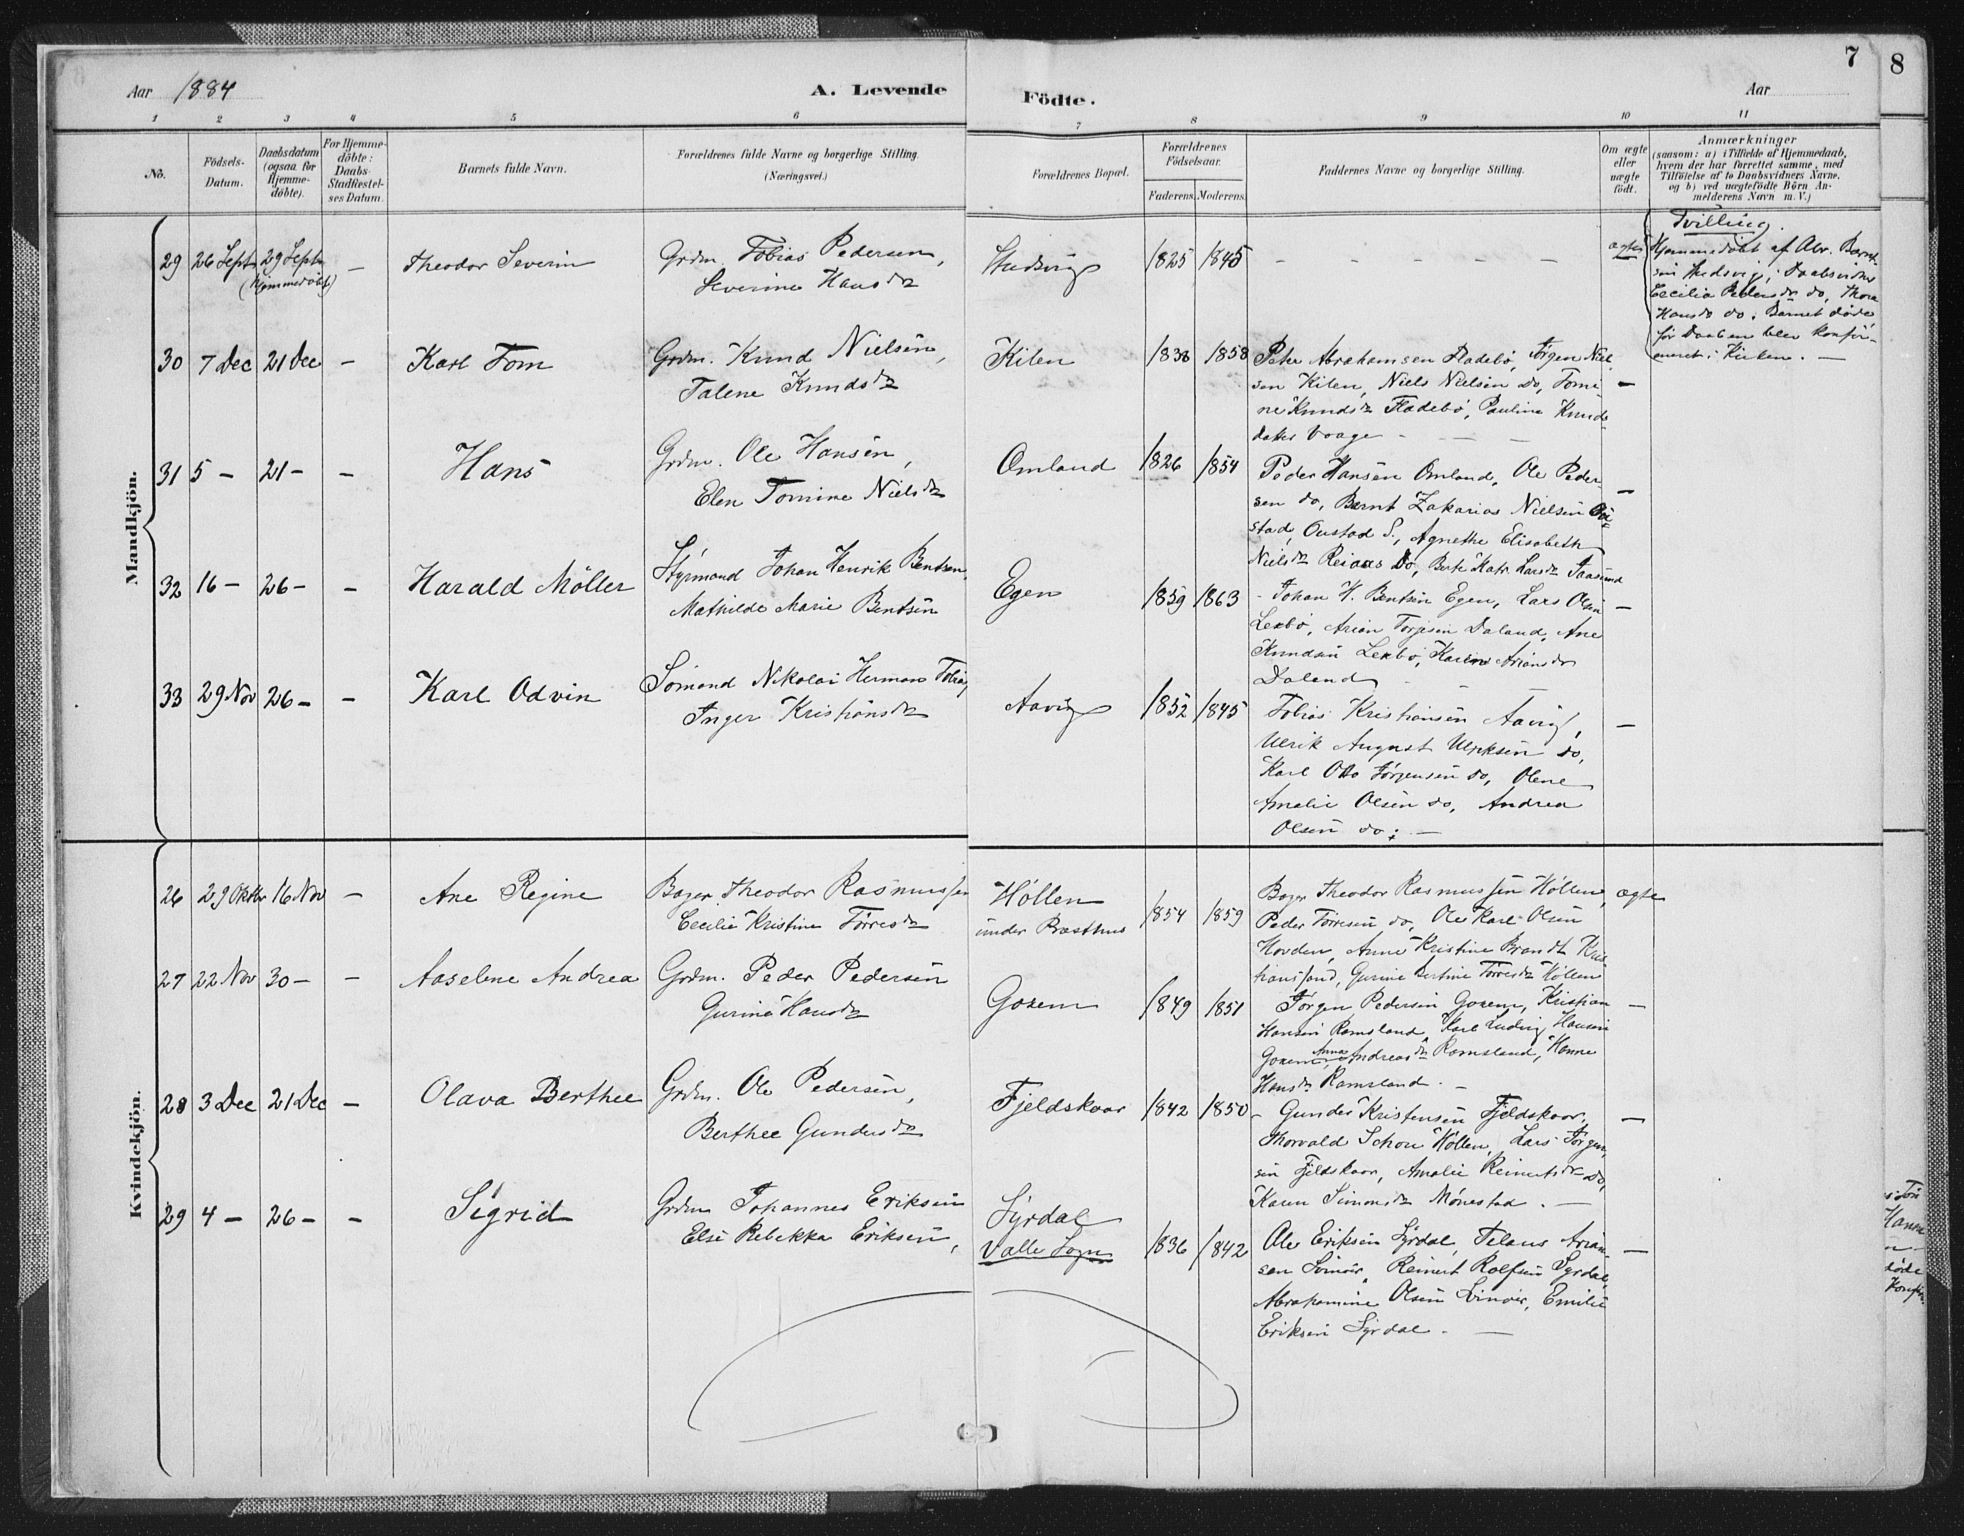 7
8
Aar 1884
A. Levende
Födte.
Aar
1 2 3 4 5 6 7 8 9 10 11
No.
Födsels-
Datum.
Daabsdatum
(ogsaa for
Hjemme-
döbte).
For Hjemme-
döbte:
Daabs-
Stadfæstel-
ses Datum.
Barnets fulde Navn.
Forældrenes fulde Navne og borgerlige Stilling.
(Næringsvei.)
Forældrenes Bopæl.
Forældrenes
Födselsaar.
Faderens. Moderens.
Faddernes Navne og borgerlige Stilling.
Om ægte
eller
uægte
födt.
Anmærkninger
(saasom: a) i Tilfælde af Hjemmedaab,
hvem der har forrettet samme, med
Tilföielse af to Daabsvidners Navne,
og b) ved uægtefödte Börn An-
melderens Navn m. V.)
Mandkjön.
29 26 Sept 29 Sept (Hjemmedöbt) — Theodor Severin
Grdm. Tobias Pedersen,
Severine Hansdr
1825 1845 — — — — — — ægte
Tvilling.
Hjemmedöbt af Abr. Bernt-
sen ; Daabsvidner
Cecilia Pedersdr do, Thora
Hansdr do. Barnet döde
för Daaben blev konfir-
meret i Kirken. —
30 7 Dec 21 Dec — Karl Tom
Grdm. Knud Nielsen,
Talene Knudsdr
Kilen 1838 1858
Peter Abrahamsen Fladebö, Jörgen Niel-
sen Kilen, Niels Nielsen do, Tomi-
ne Knudsdr Fladebö, Pauline Knuds-
datter Vaage — — —
31 5 — 21 — — Hans
Grdm. Ole Hansen,
Elen Tomine Nielsdr
Omland 1826 1854
Peder Hansen Omland, Ole Peder-
sen do, Bernt Zakarias Nielsen
stad, S., Agnethe Elisabeth
Nielsdr do, Berte Katr. Larsdr
32 16 — 26 — — Harald Möller
Styrmand Johan Henrik Bentsen,
Mathilde Marie Bentsen
Egen 1859 1863
Johan H. Bentsen Egen, Lars Olsen
Lexbö, Arian Torjesen Daland, Ane
Knudsen Lexbö, Karine Ariansdr
Daland
33 29 Nov 26 — — Karl Odvin
Sömand Nikolai Herman
Inger Kristiansdr
Aavig 1852 1845
Tobias Kristiansen Aavig,
Ulrik August Ulriksen do,
Karl Otto Jörgensen do, Olene
Amalie Olsen do, Andrea
Olsen do. —
Kvindekjön.
26 29 Oktbr 16 Nov — Ane Regine
Bager Theodor Rasmussen
Cecilie Kristine Törresdr
Höllen
under Præsthus
1854 1859
Bager Theodor Rasmussen Höllen, ægte
Peder Törresen do, Ole Karl Olsen
Hovden, Anne Kristine Brandt Kris-
tiansand, Gurine Bertine Törresdr Höllen
27 22 Nov 30 — — Aaselene Andrea
Grdm. Peder Pedersen
Gurine Hansdr
Goxem 1849 1851
Jörgen Pedersen Goxem, Kristian
Hansen Ramsland, Karl Ludvig Hansen
Goxem, Anna Andreasdr Ramsland, Hanne
Hansdr Ramsland. —
28 3 Dec 21 Dec — Olava Berthee
Grdm. Ole Pedersen,
Berthee Gundersdr
Fjeldskaar 1842 1850
Gunder Kristensen Fjeldskaar,
Thorvald Schou Höllen, Lars Jörgen-
sen Fjeldskaar, Amalie Reinertsdr do,
Karen Simonsdr Mönestad. —
29 4 — 26 — — Sigrid
Grdm Johannes Eriksen
Else Rebekka Eriksen,
Syrdal
Valle Sogn
1836 1842
Ole Eriksen Syrdal, Telaus Arian-
sen, Reinert Rolfsen Syrdal,
Abrahamine Olsen, Emilie
Eriksen Syrdal. —
Hanne
döde